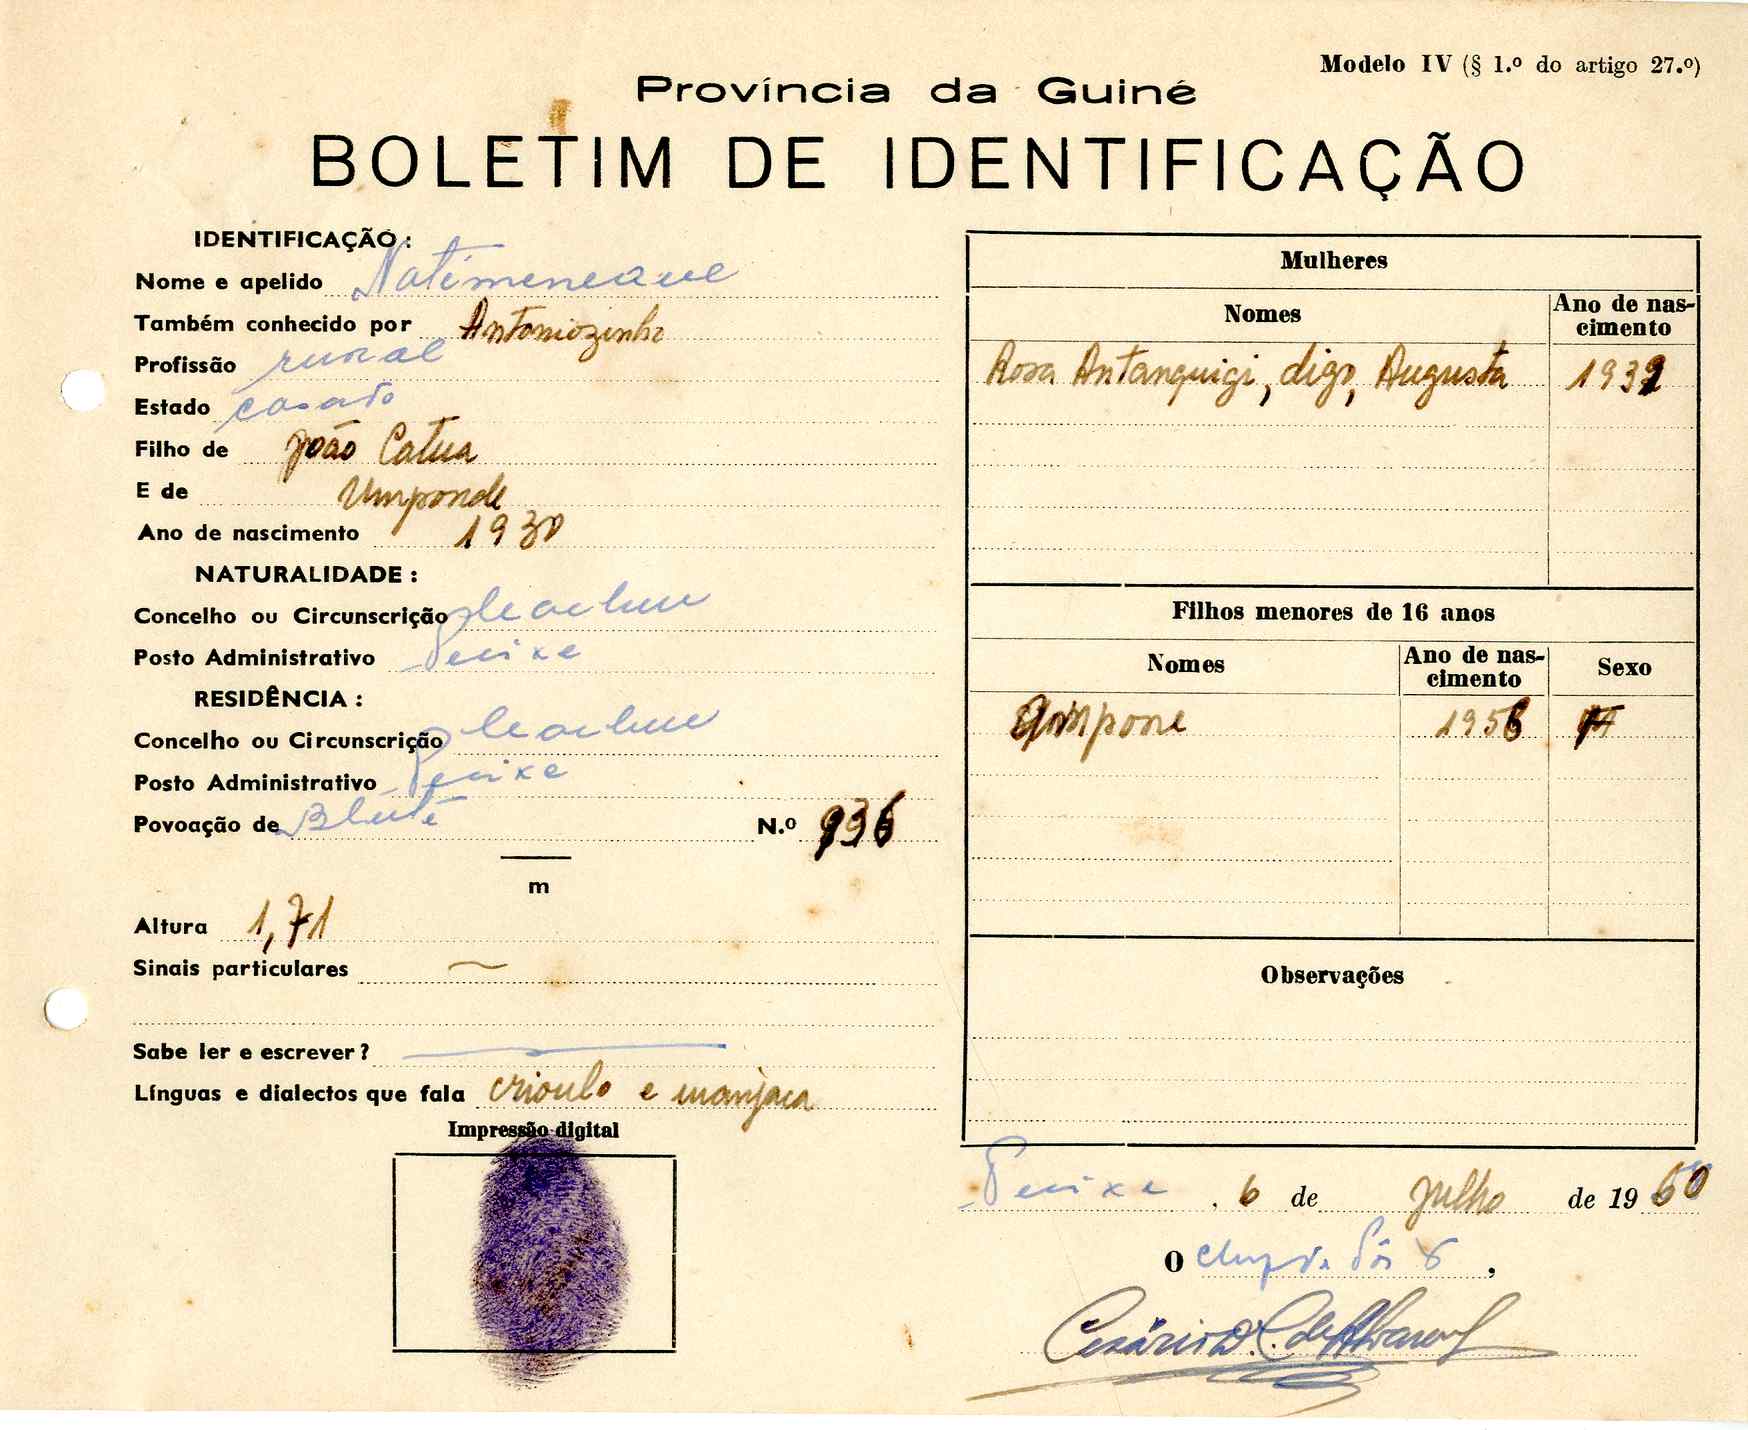 Modelo IV (§ 1.º do artigo 27.º)
Província da Guiné
BOLETIM DE IDENTIFICAÇÃO
IDENTIFICAÇÃO:
Nome e apelido
Também conhecido por Antoniozinho
Profissão rural
Estado casado
Filho de João Catua
E de Umponde
Ano de nascimento 1930
NATURALIDADE:
Concelho ou Circunscrição
Posto Administrativo Pecixe
RESIDÊNCIA:
Concelho ou Circunscrição
Posto Administrativo Pecixe
Povoação de N.º 936
m
Altura 1,71
Sinais particulares ~
Sabe ler e escrever? —
Línguas e dialectos que fala crioulo e manjaca
Impressão digital
Mulheres
Nomes Ano de nas-
cimento
Rosa Antanquigi, digo, Augusta 1932
Filhos menores de 16 anos
Nomes Ano de nas-
cimento Sexo
Ampone 1956
Observações
Pecixe, 6 de julho de 1960
O